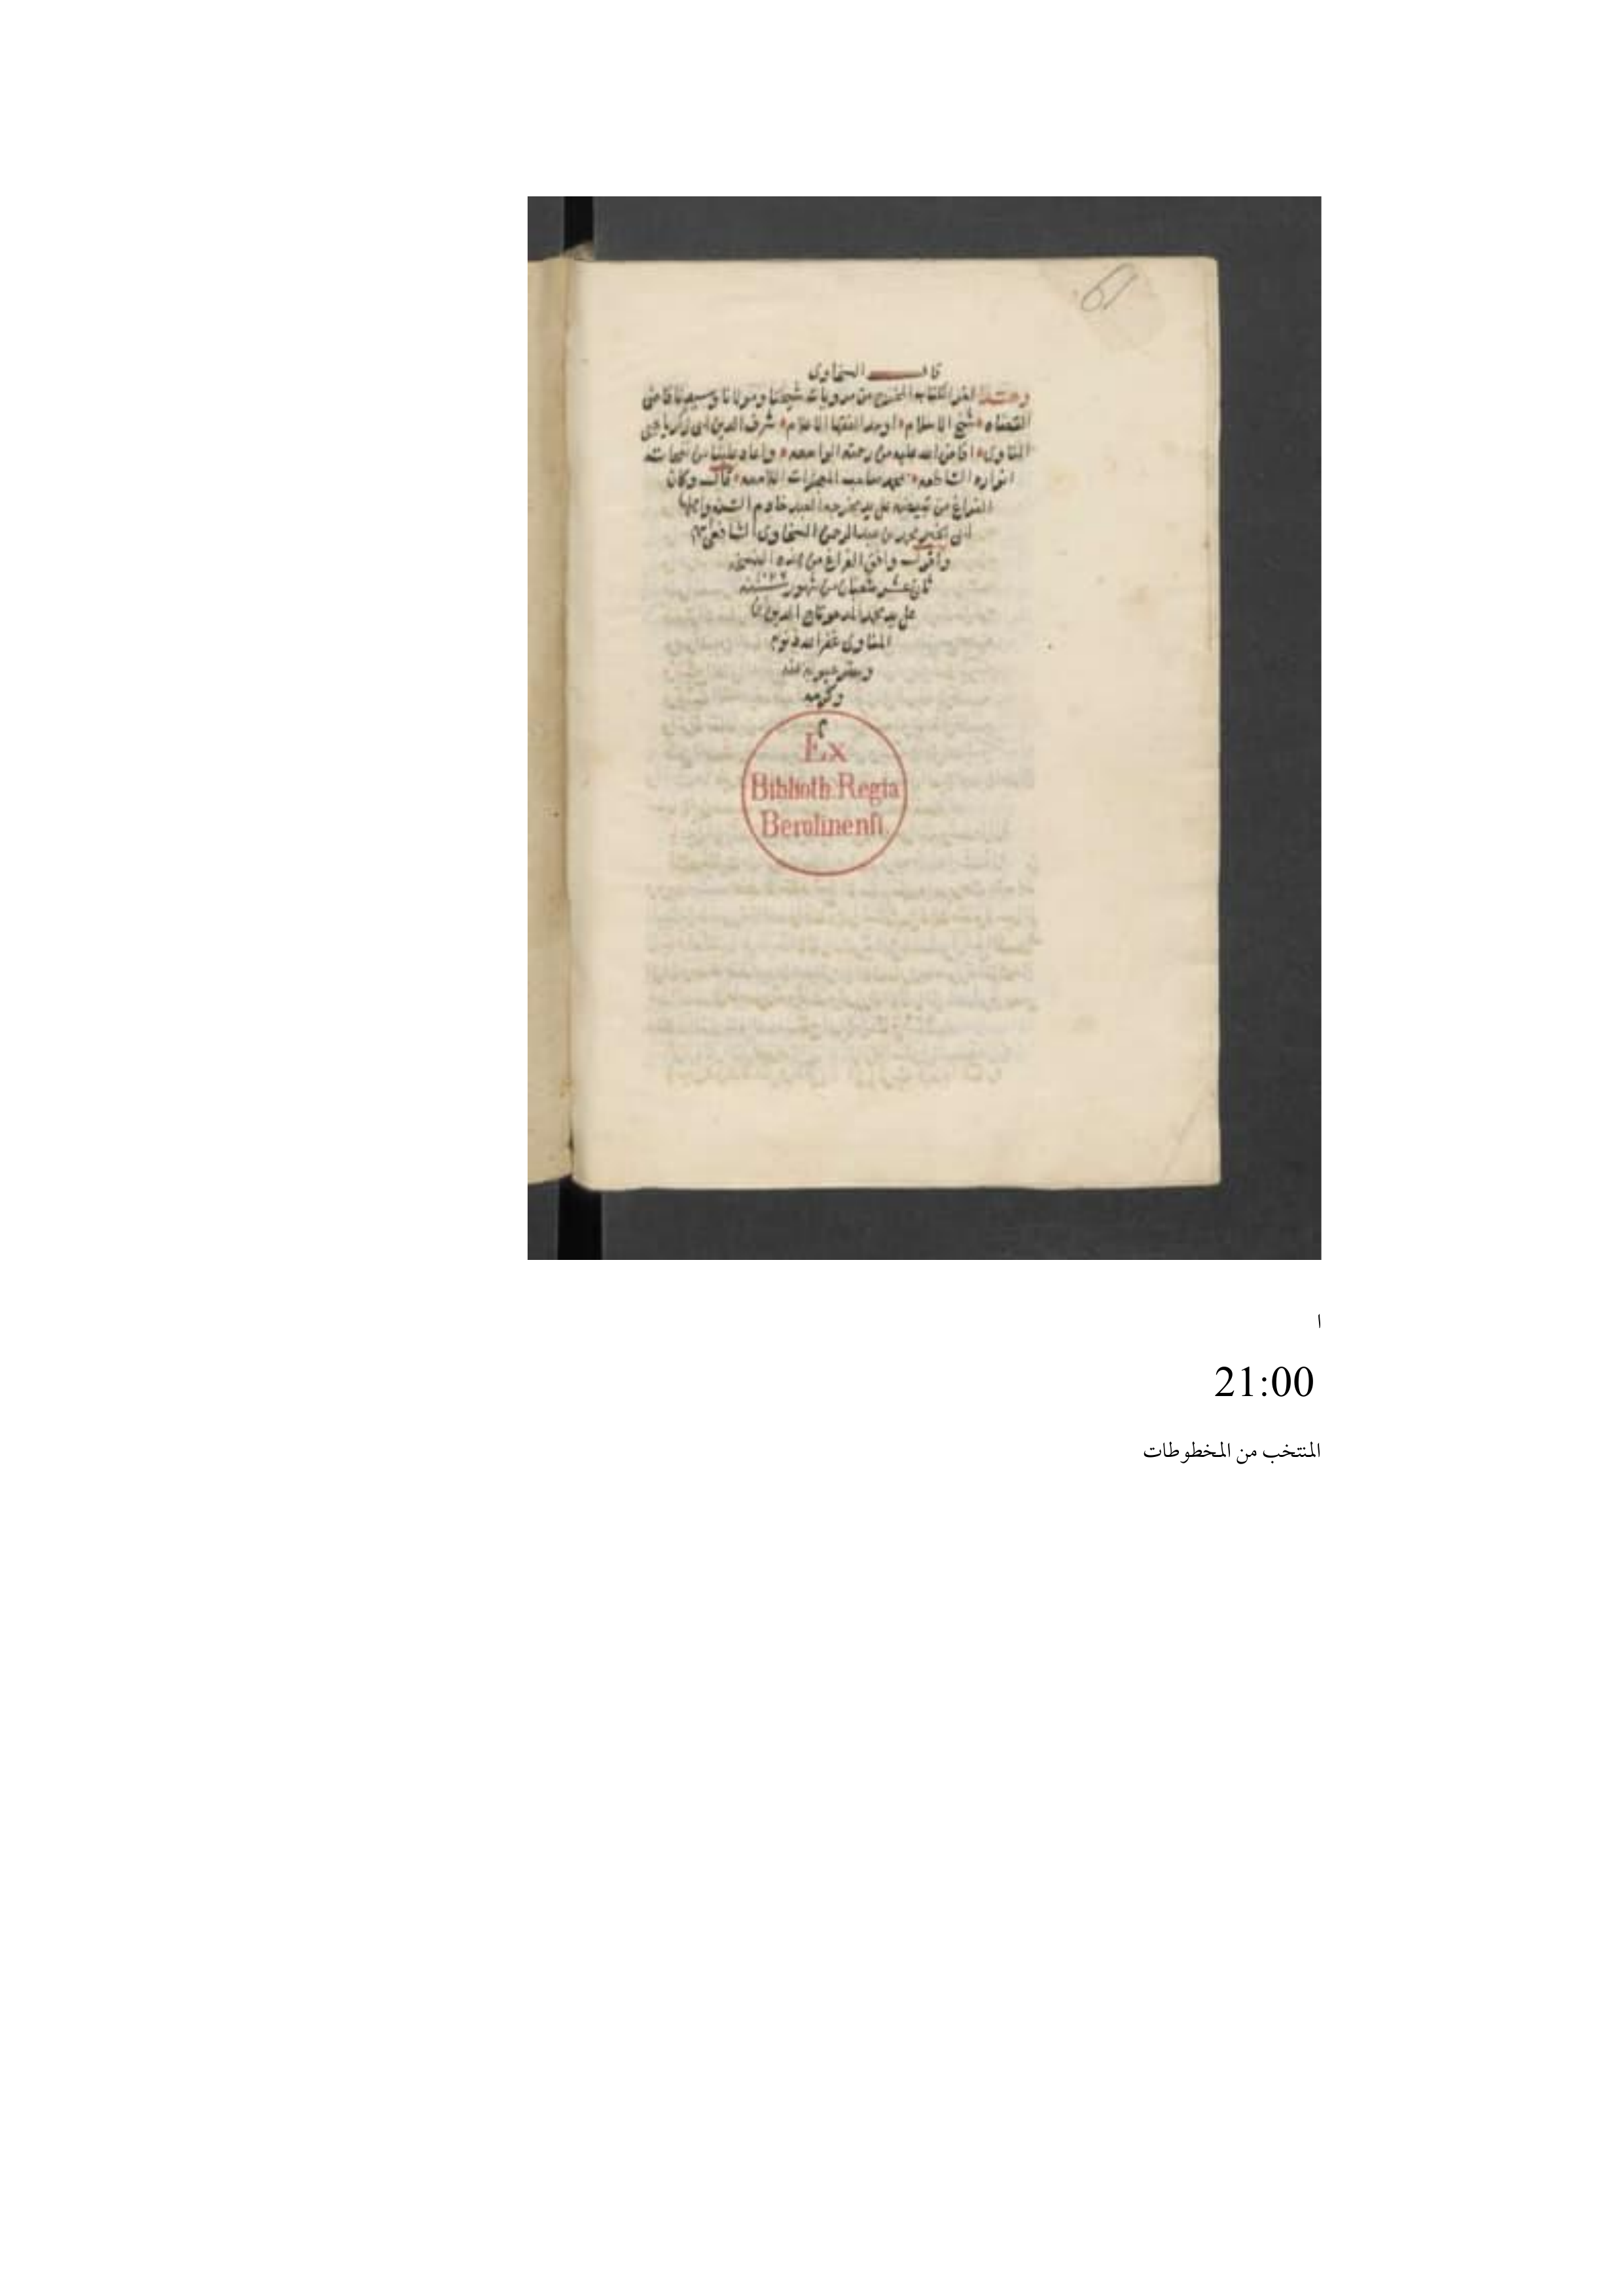 قال السخاوى
وهذا اخر الكتاب المخرج من مرويات شيخنا ومولانا وسيدنا قاضى
القضاه شيخ الاسلام اوحد الفقها الاعلام شرف الدين ابى زكريا يحيى
المناوى افاض الله عليه من رحمته الواسعه واعاد علينا من
انواره الساطعه بمحمد صاحب المعجزات اللامعه قال وكان
الفراغ من تبييضه على يد مخرجه العبد خادم السنه واهلها
ابى الخير محمد بن عبد الرحمن السخاوى الشافعى
واقول وافق الفراغ من هذه النسخه
ثان عشر شعبان من شهور سنة
على يد محمد المدعو تاج الدين بن
المناوى غفر الله ذنوبه
وستر عيوبه بمنه
وكرمه
م
Ex
Biblioth. Regia
Berolinenſi.
ا
21:00
المنتخب من المخطوطات